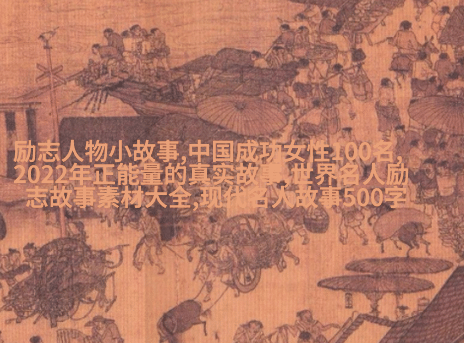 励志人物小故事,中国成功女性100名,
2022年正能量的真实故事,世界名人励
志故事素材大全,现代名人故事500字